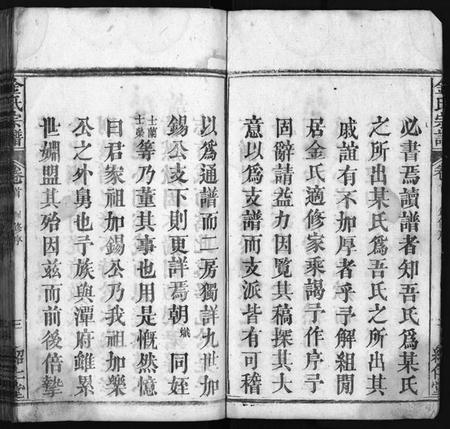 必書焉讀譜者知吾氏爲某氏
之所出某氏爲吾氏之所出
戚誼有不加厚者乎予解組閒
居金氏適修家乘謁予作序予
固辭請益力因覽其稿探其大
意以爲支譜而支派皆有可稽
金氏宗譜
卷首
三
以爲通譜而二房獨詳九世加
錫公支下則更詳焉朝 同姪
士蘭等乃董其事也用是慨然憶
曰君家祖加錫公乃我祖加樂
公之外舅也予族與潭府雖累
世婣盟其殆因兹而前後倍摯